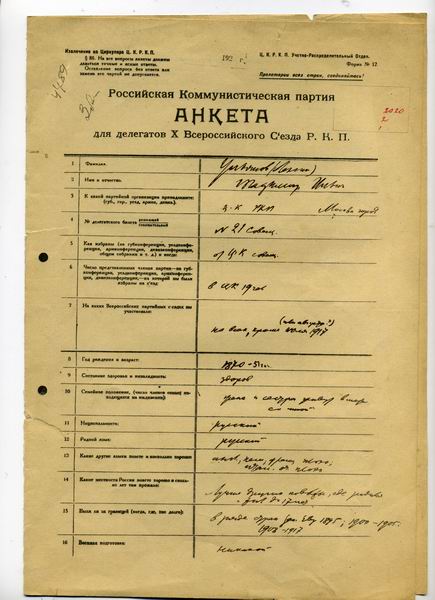 Извлечение из Циркуляра Ц. К. Р. К. П.
§ 80. На все вопросы анкеты должны
даваться точные и ясные ответы.
Оставление вопроса без ответа или
замена его чертой не допускается.
192 г.
Ц. К. Р. К. П. Учетно-Распределительный Отдел.
Форма № 12
Пролетарии всех стран, соединяйтесь!
Российская Коммунистическая партия
АНКЕТА
для делегатов X Всероссийского С'езда Р. К. П.
2020
2
1
1 Фамилия. Ульянов (Ленин)
2 Имя и отчество. Владимир Ильич
3 К какой партийной организации принадлежите:
(губ., гор., уезд, армия, дивиз.).
Ц-К РКП Москва город
4 № делегатского билета
N 21 совещ.
5 Как избраны (на губконференции, уездконфе-
ренции, армконференции, дивконференции,
общем собрании и т. д.) и когда:
от ЦК совещ.
6 Число представленных членов партии—на губ-
конференции, уездконференции, армконферен-
ции, дивконференции,—на которой вы были
избраны на с'езд:
в ЦК 19 чел
7 На каких Всероссийских партийных с'ездах вы
участвовали:
на всех, кроме июля 1917
(или августа?)
8 Год рождения и возраст: 1870—51 г.
9 Состояние здоровья и инвалидность: здоров
10 Семейное положение, (число членов семьи на-
ходящихся на иждивении):
жена и сестра
11 Национальность: русский
12 Родной язык: русский
13 Какие другие языки знаете и насколько хорошо:
плохо
14 Какие местности России знаете хорошо и сколь-
ко лет там прожили:
15 Были ли за границей (когда, где, как долго):
1895; 1900—1905
1908—1917
16 Военная подготовка: никакой